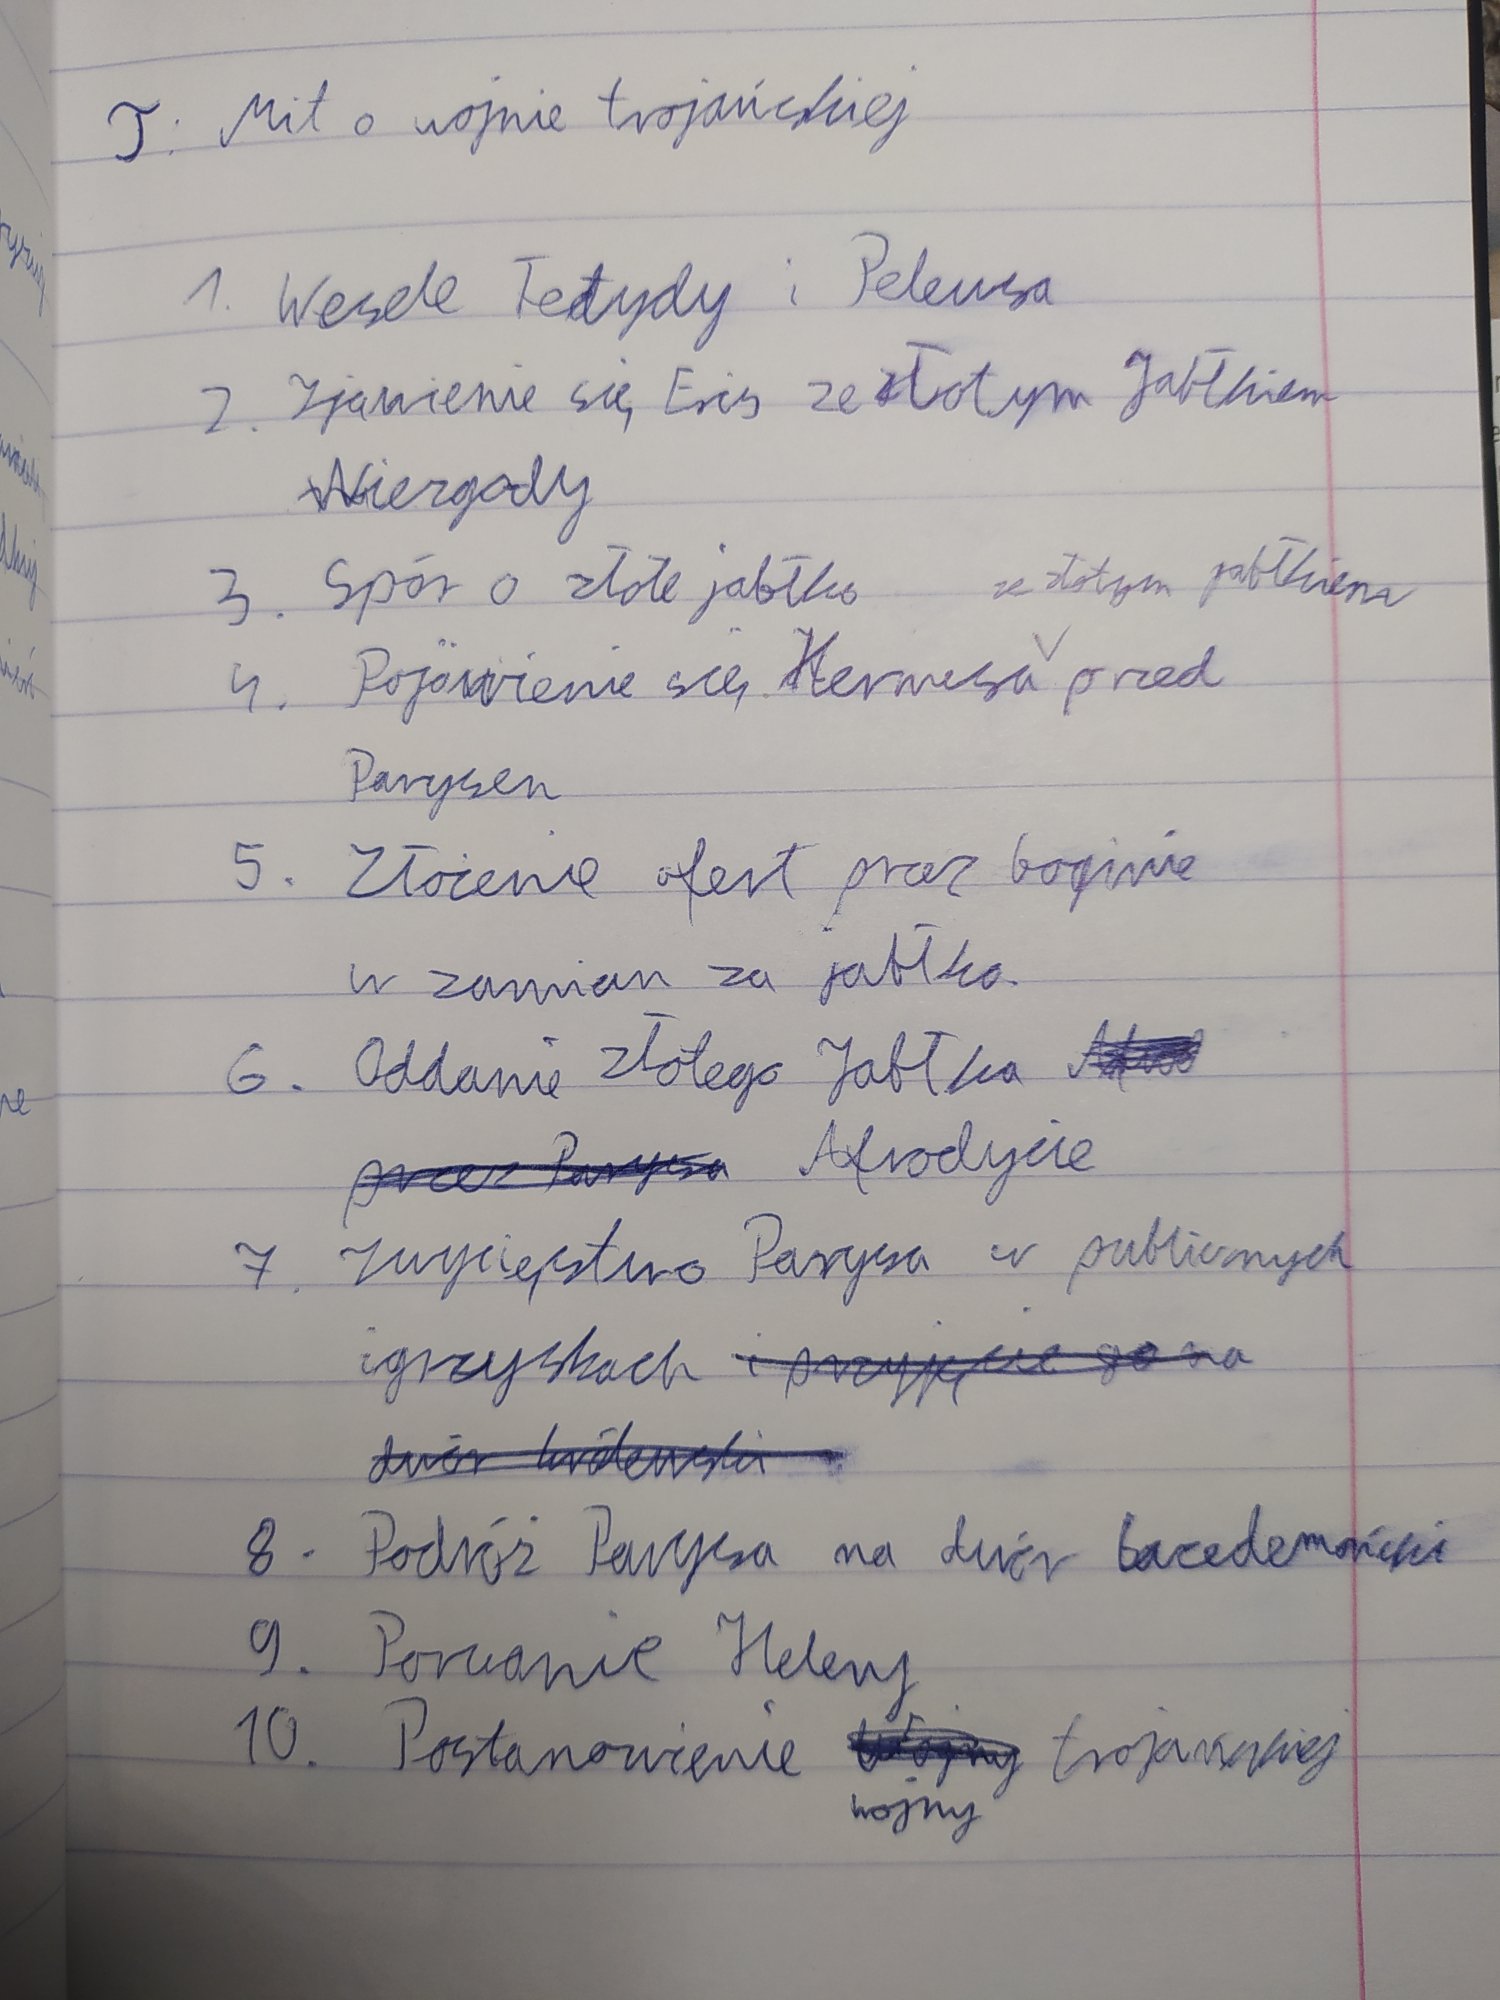 T: Mit o wojnie trojańskiej
1. Wesele Tetydy i Peleusa
2. Zjawienie się Eris ze złotym Jabłkiem
Niezgody
3. Spór o złote jabłko
ze złotym jabłkiem
4. Pojawienie się Hermesa przed
Parysem
5. Złożenie ofert przez boginie
w zamian za jabłko.
6. Oddanie złotego Jabłka
przez Parysa Afrodycie
7. Zwycięstwo Parysa w publicznych
igrzyskach i przyjęcie go na
dwór królewski
8. Podróż Parysa na dwór Lacedemoński
9. Porwanie Heleny
10. Postanowienie Wojny trojańskiej
wojny